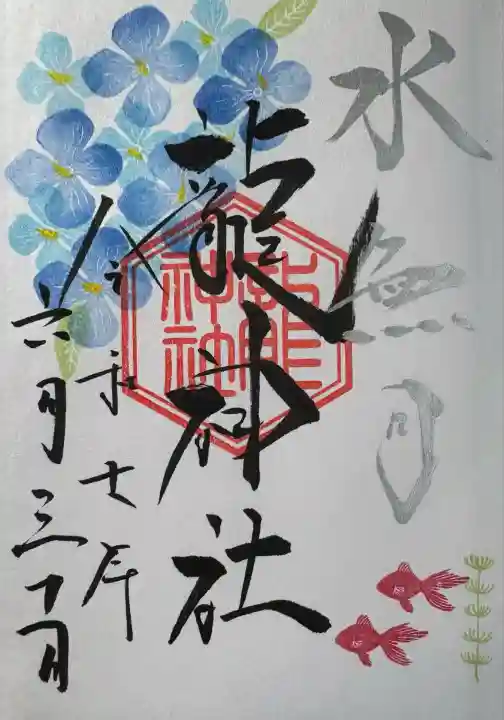 水無月
龍神社
龍
神社
令和七年
六月三十日